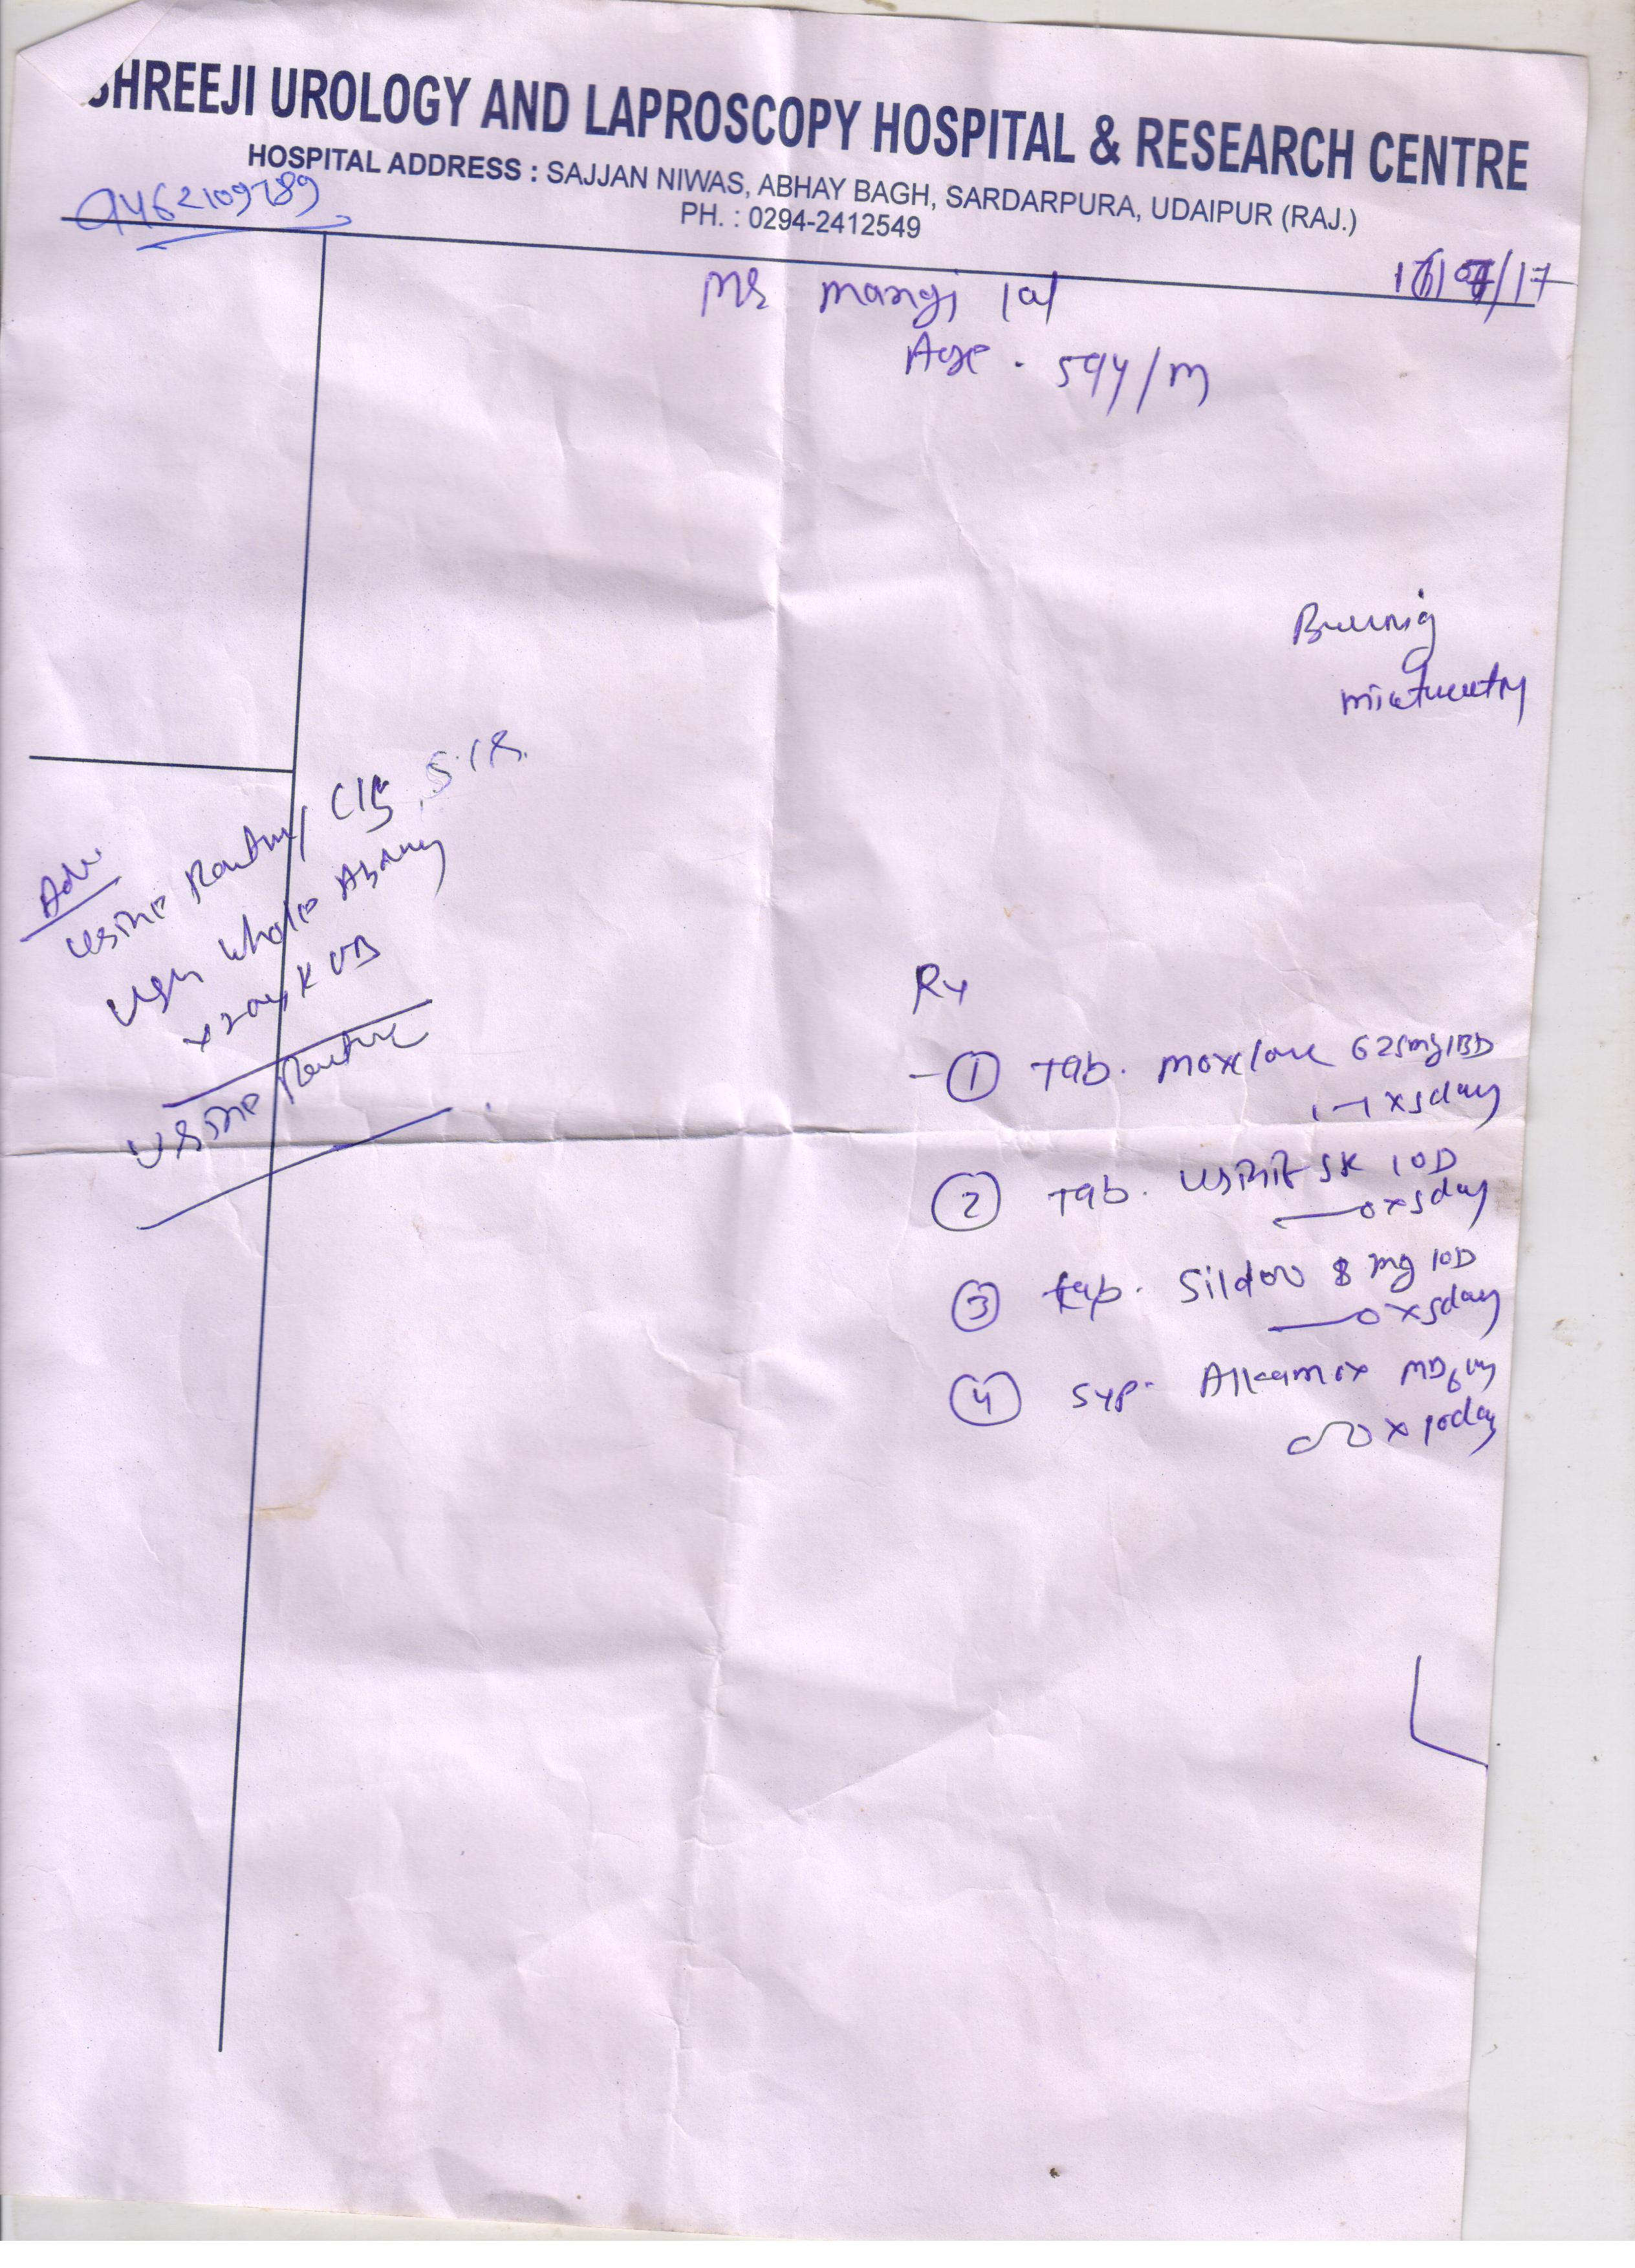 SHREEJI UROLOGY AND LAPROSCOPY HOSPITAL & RESEARCH CENTRE
HOSPITAL ADDRESS : SAJJAN NIWAS, ABHAY BAGH, SARDARPURA, UDAIPUR (RAJ.)
PH. : 0294-2412549
9462109789
/17
Mr mangi lal
Age . 59y/m
Burnig
Adv
Urine Routine/ C/S, S.
USG whole Abdomen
xray KUB
Urine Routine
Rx
① Tab. moxclave 625mg 1BD
1-1 x 5day
② Tab. SR 1OD
0 x 5day
③ Tab. Sildoo 8 mg 1OD
0 x 5day
④ Syp. Alkamox
x 10day